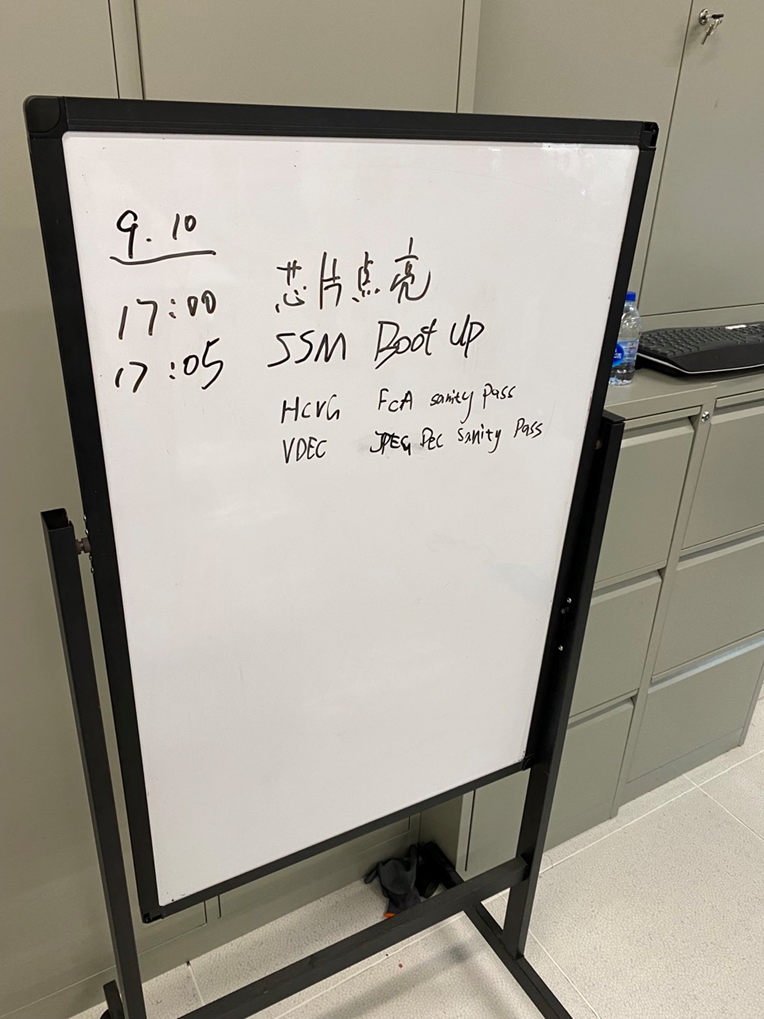 9.10
17:00 芯片点亮
17:05 SSM Boot Up
HCVG FCA sanity Pass
VDEC JPEG DEC Sanity Pass